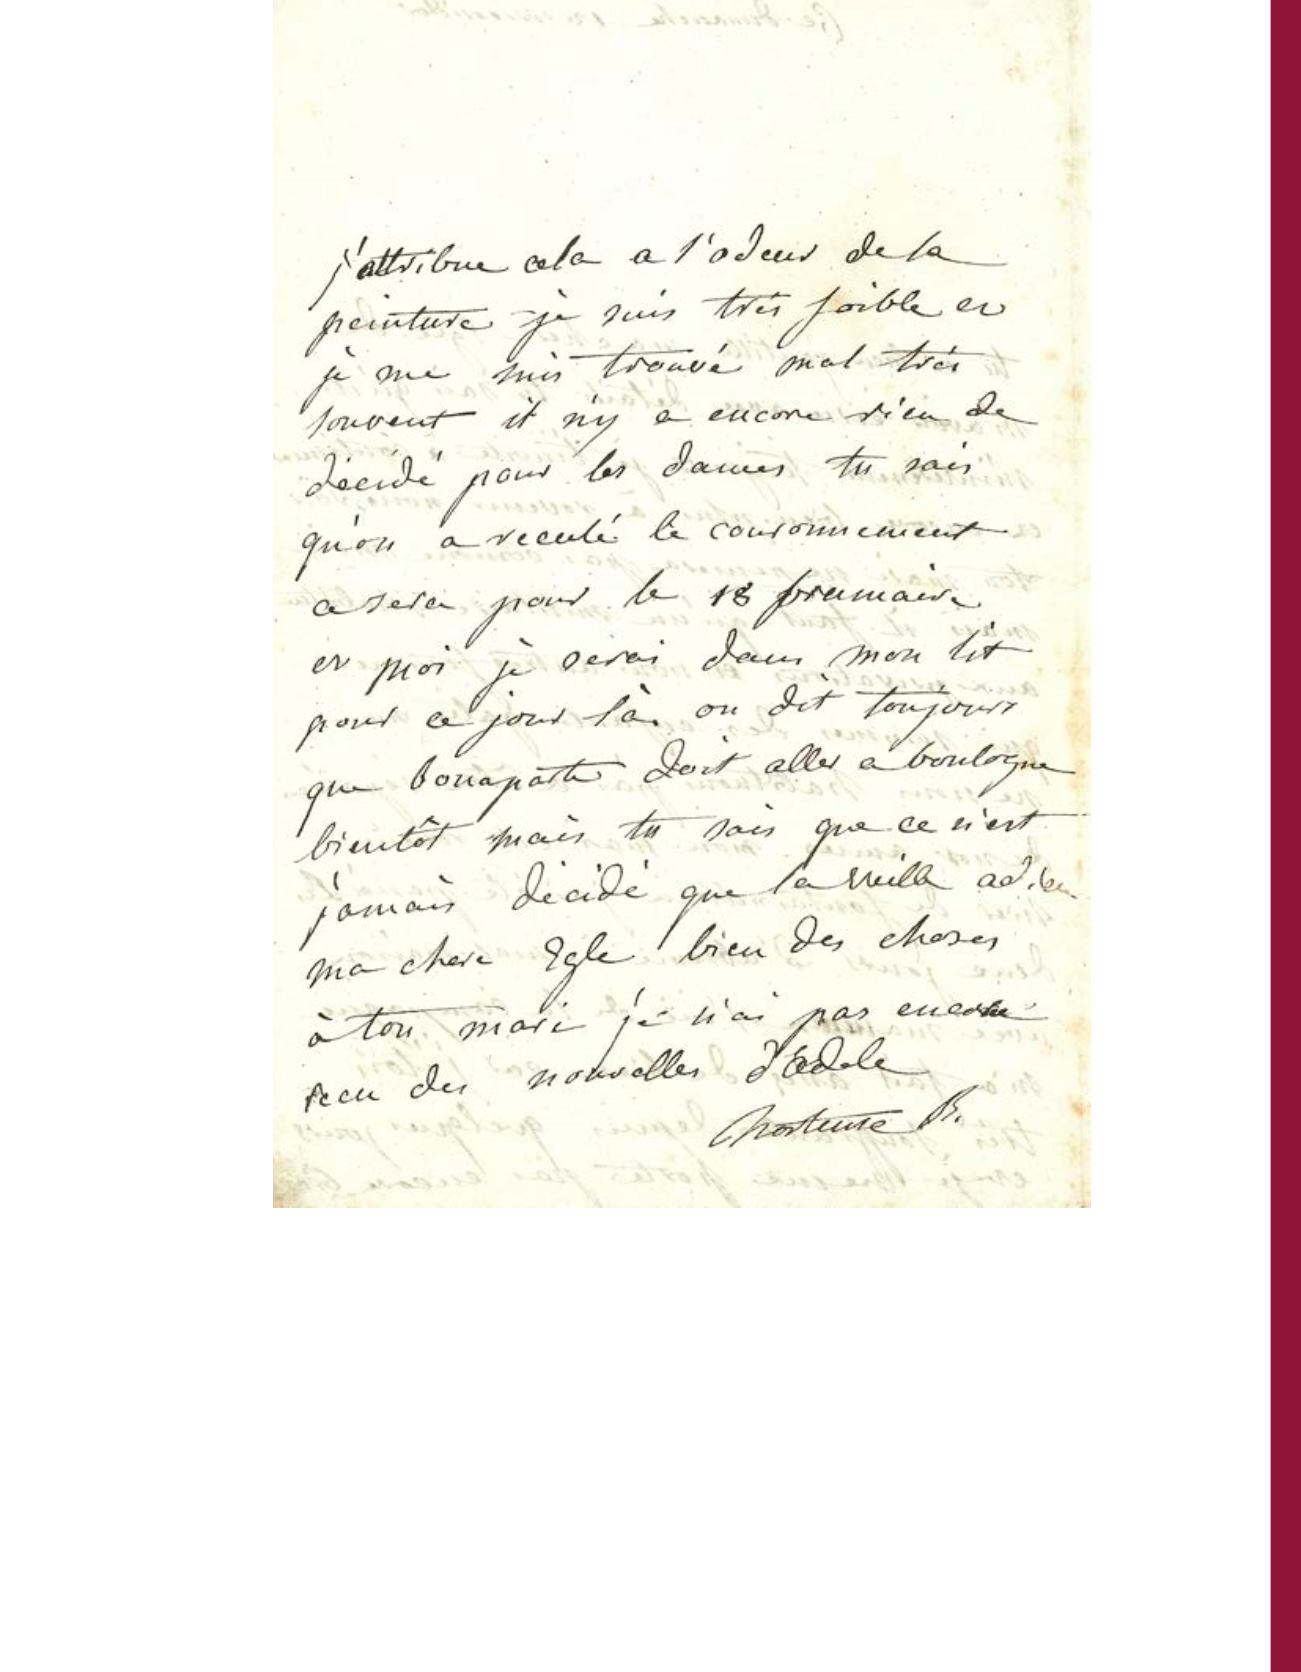 j'attribue cela a l'odeur de la
peinture je suis très foible et
je me suis trouvé mal très
souvent il n'y a encore rien de
décidé pour les dames tu sais
qu'on a reculé le couronnement
ce sera pour le 18 brumaire
et moi je serai dans mon lit
pour ce jour là. on dit toujours
que bonaparte doit aller a boulogne
bientôt mais tu sais que ce n'est
jamais décidé que la veille adieu
ma chere Egle bien des choses
à ton mari je n'ai pas encore
recu des nouvelles d'adele
hortense B.